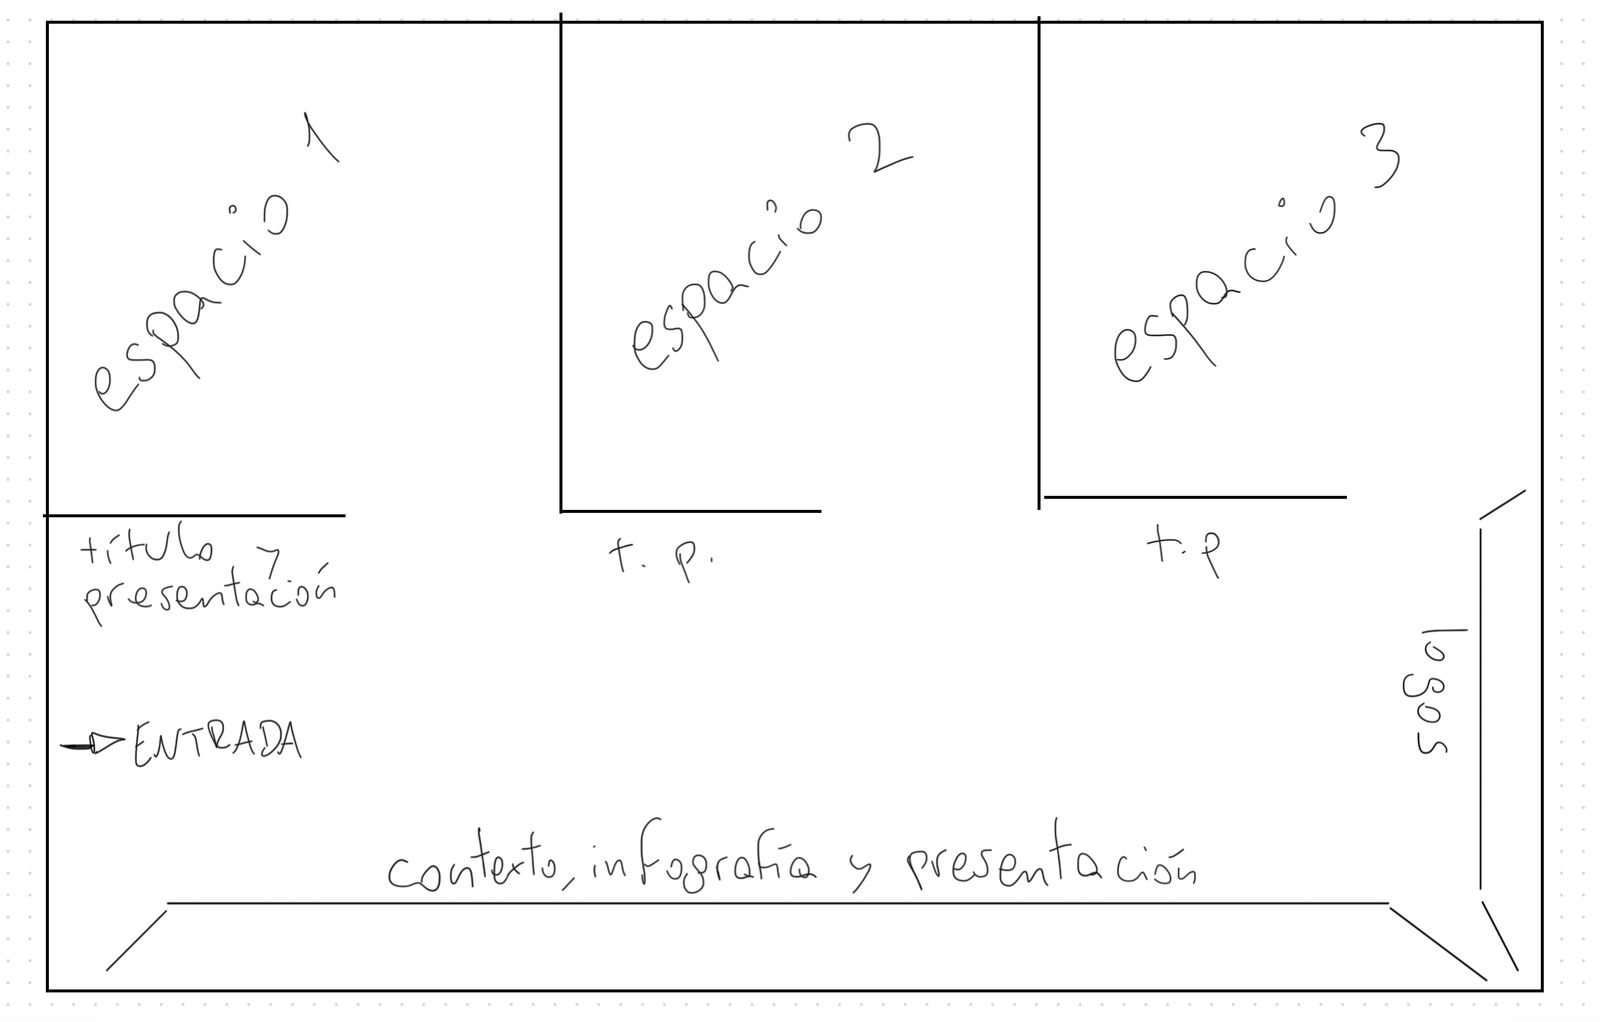 espacio 1
espacio 2
espacio 3
título y
presentación
t. p.
t. p
logos
ENTRADA
contexto, infografía y presentación